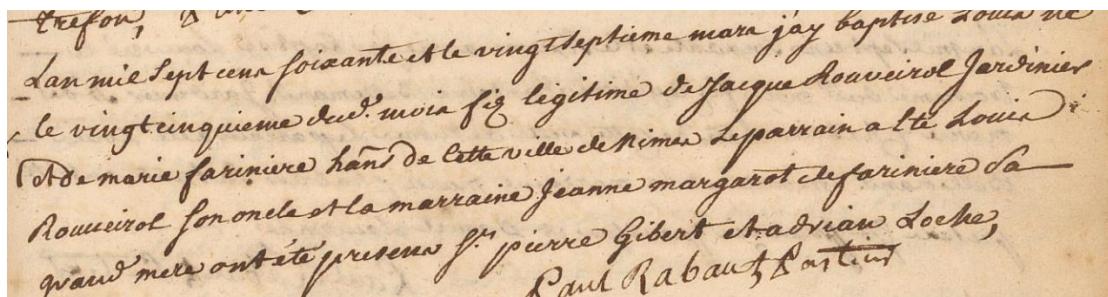 trefon,
Lan mil sept cens soixante et le vingt septieme mars j'ay baptisé Louis né
le vingt cinquieme dud. mois fiz legitime de Jacque Rouveirol Jardinier
et de marie fariniere hañs de cette ville de Nimes le parrain a été Louis
Rouveirol son oncle et la marraine Jeanne margarot de fariniere sa
grand mere ont été presens Srs pierre Gibert et adrian Loche,
Paul Rabaut Pasteur